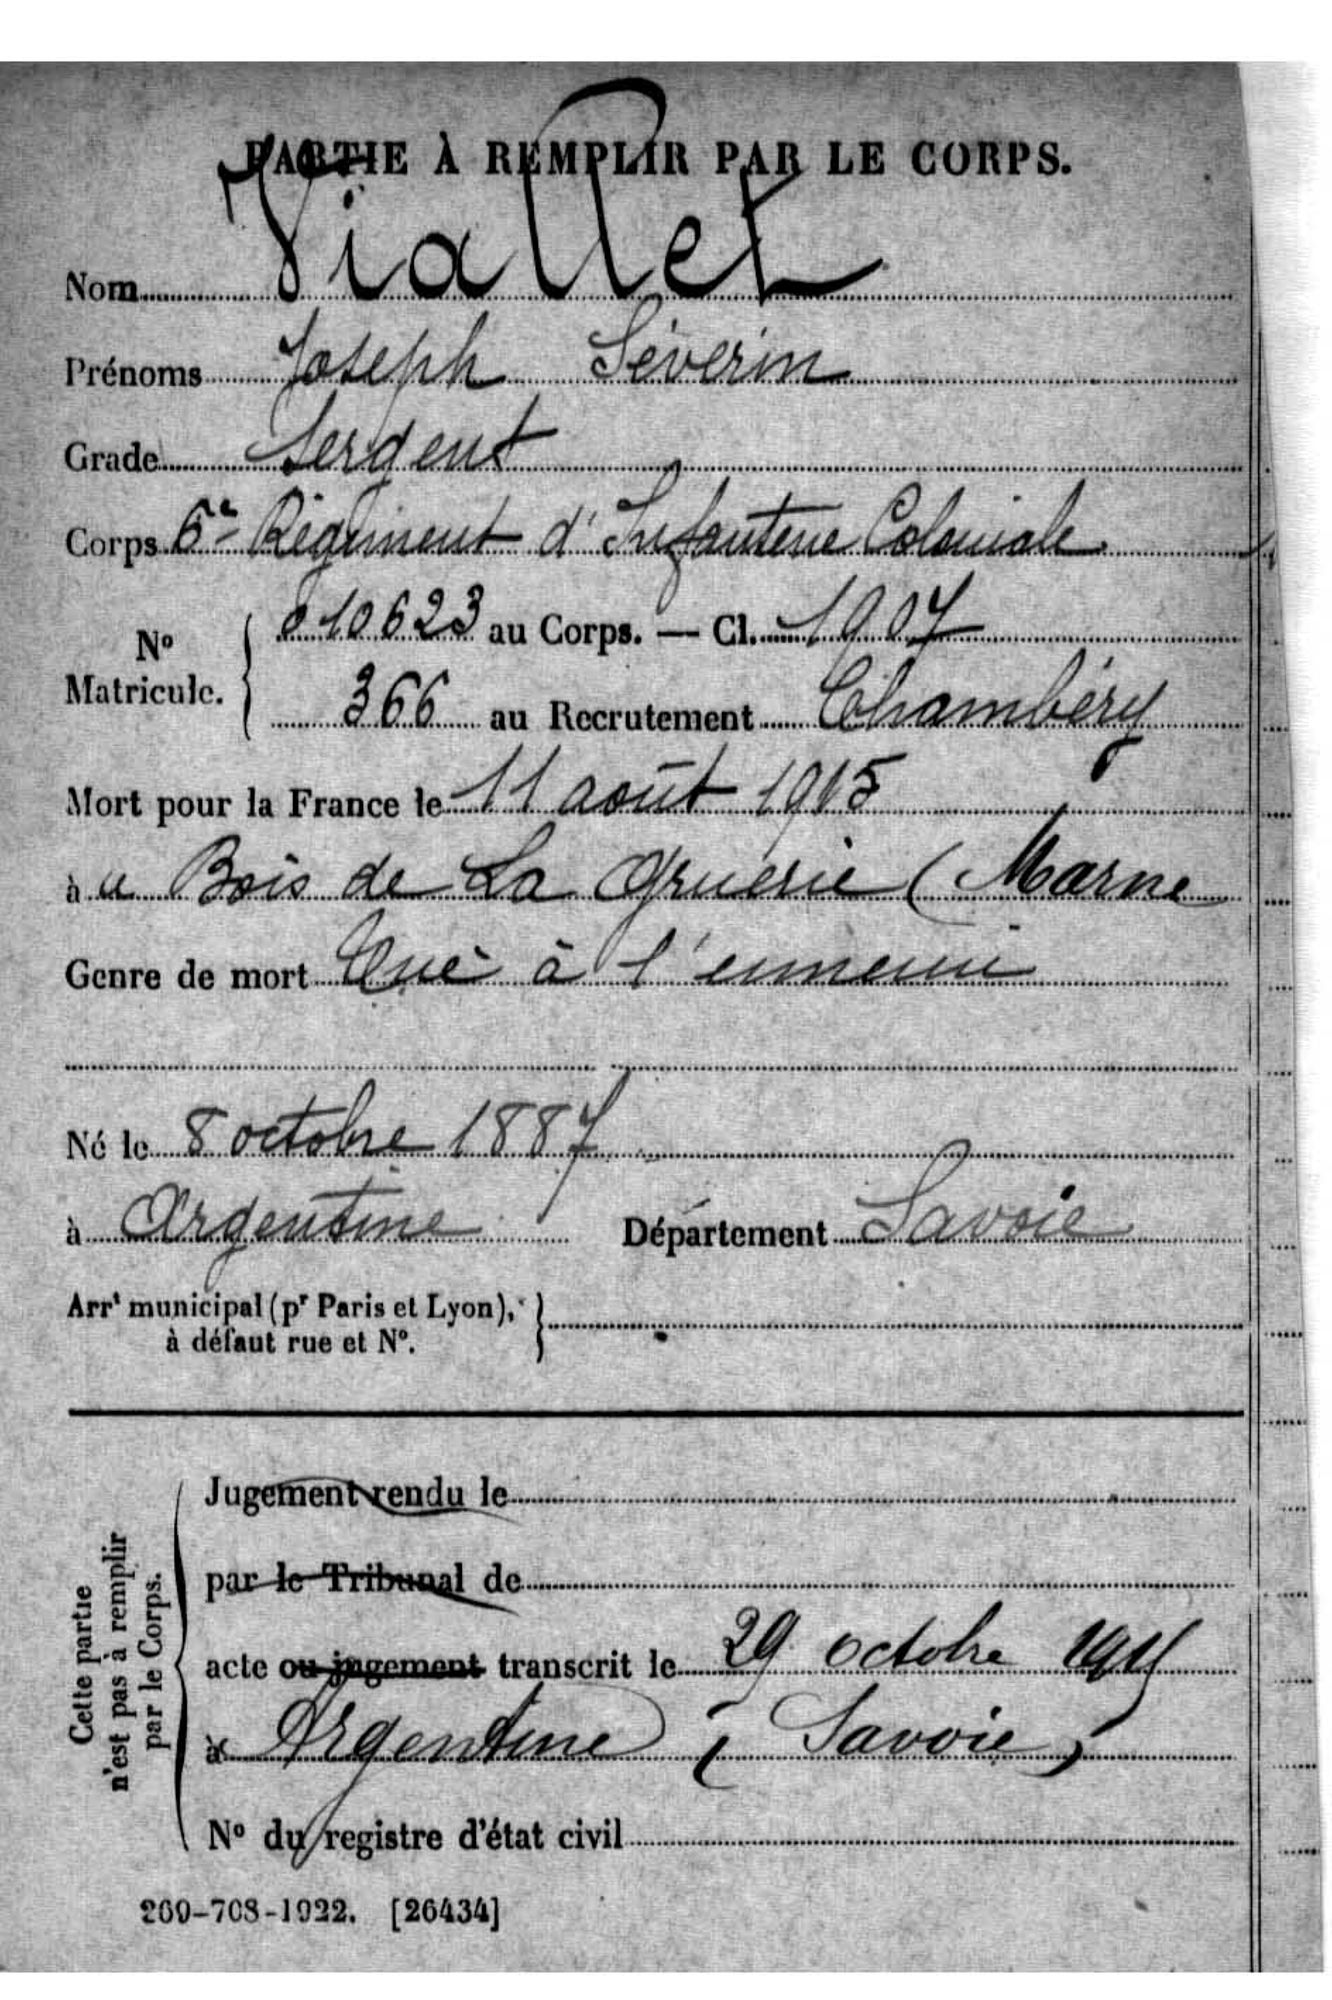 PARTIE À REMPLIR PAR LE CORPS.
Nom Viallet
Prénoms Joseph Séverin
Grade Sergent
Corps 6e Régiment d'Infanterie Coloniale
No Matricule. { 010623 au Corps. — Cl. 1907
366 au Recrutement Chambéry
Mort pour la France le 11 août 1915
à u Bois de La Gruerie (Marne
Genre de mort Tué à l'ennemi
Né le 8 octobre 1887
à Argentine Département Savoie
Arrt municipal (pr Paris et Lyon), }
à défaut rue et No.
Cette partie
n'est pas à remplir
par le Corps.
Jugement rendu le
par le Tribunal de
acte ou jugement transcrit le 29 octobre 1915
à Argentine (Savoie)
No du registre d'état civil
269-708-1922. [26434]